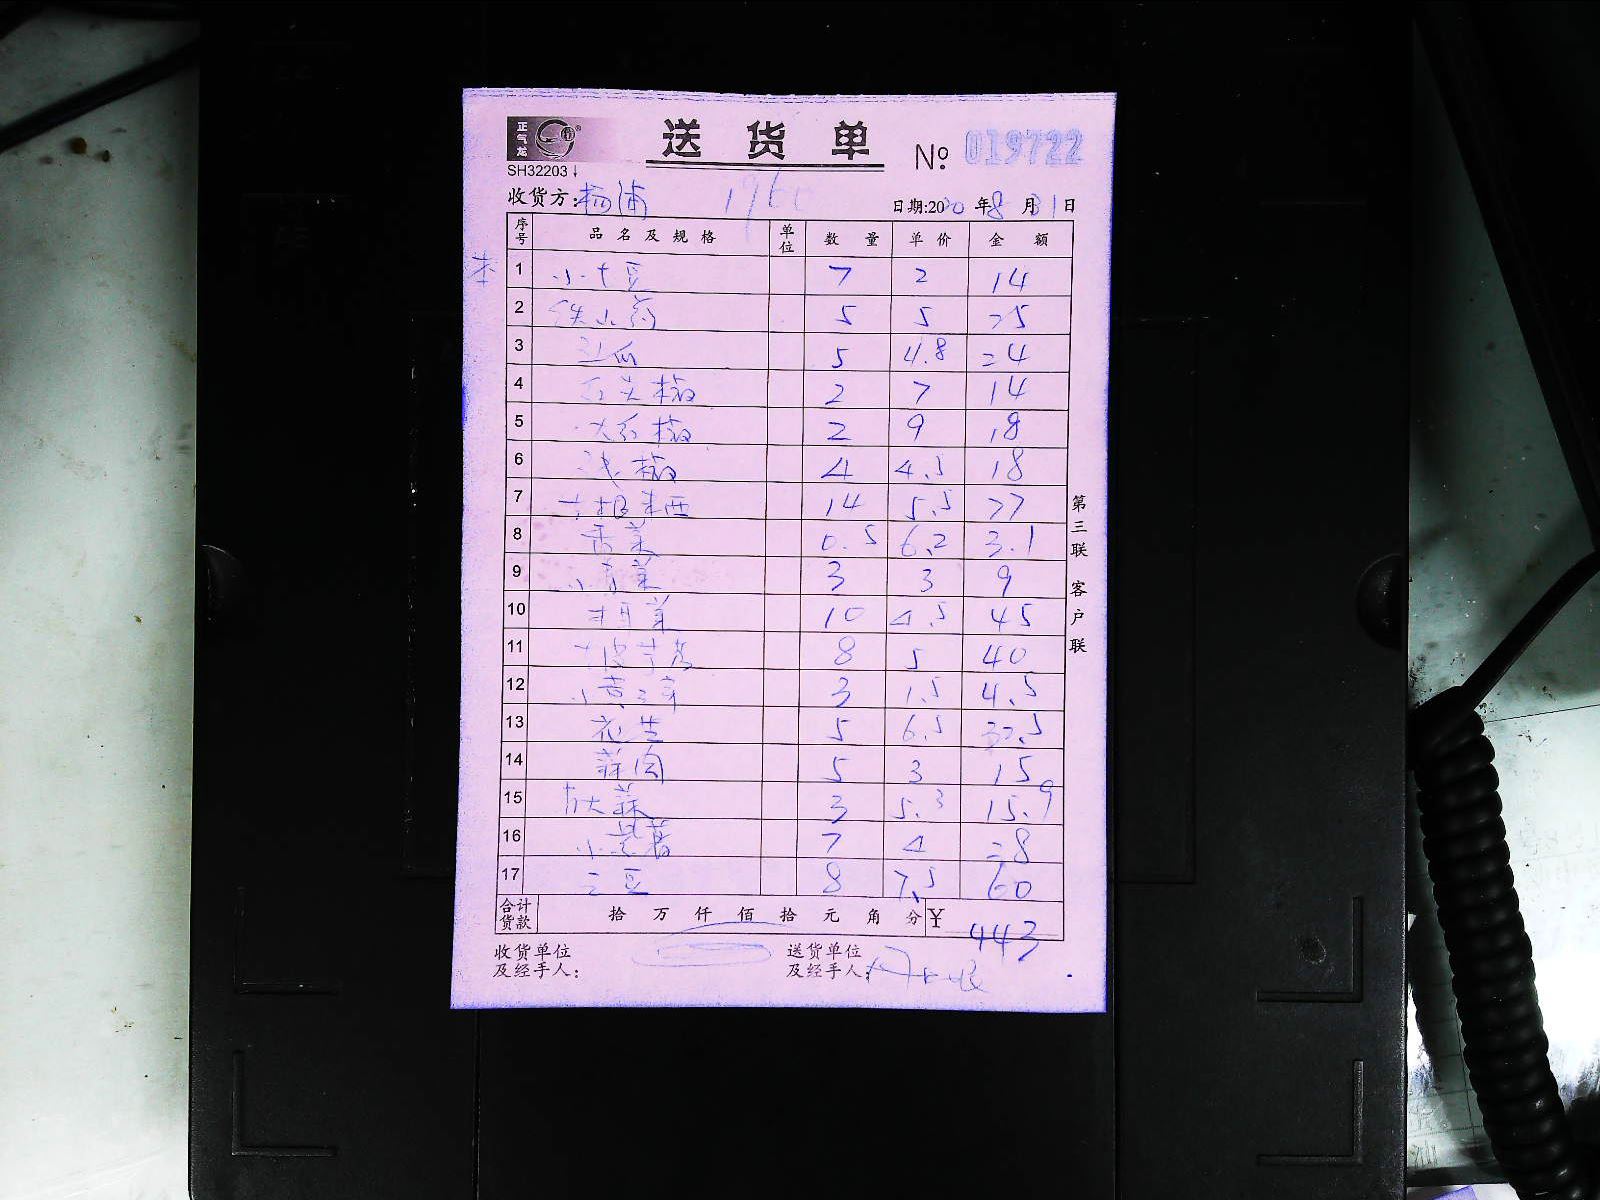 正气龙
送 货 单
№ 019722
SH32203
收货方: 杨浦 1960
日期:2020 年 8 月 31 日
序号 品名及规格 单位 数量 单价 金额
1 小土豆 7 2 14
2 铁山药 5 5 25
3 5 4.8 24
4 椒 2 7 14
5 大红椒 2 9 18
6 线椒 4 4.5 18
7 14 5.5 77
8 香菜 0.5 6.2 3.1
9 小青菜 3 3 9
10 10 4.5 45
11 8 5 40
12 小黄 3 1.5 4.5
13 花生 5 6.5 32.5
14 蒜肉 5 3 15
15 大蒜 3 5.3 15.9
16 小 薯 7 4 28
17 豆 8 7.5 60
合计货款 拾 万 仟 佰 拾 元 角 分 ¥ 443
收货单位及经手人:
送货单位及经手人:
第三联 客户联